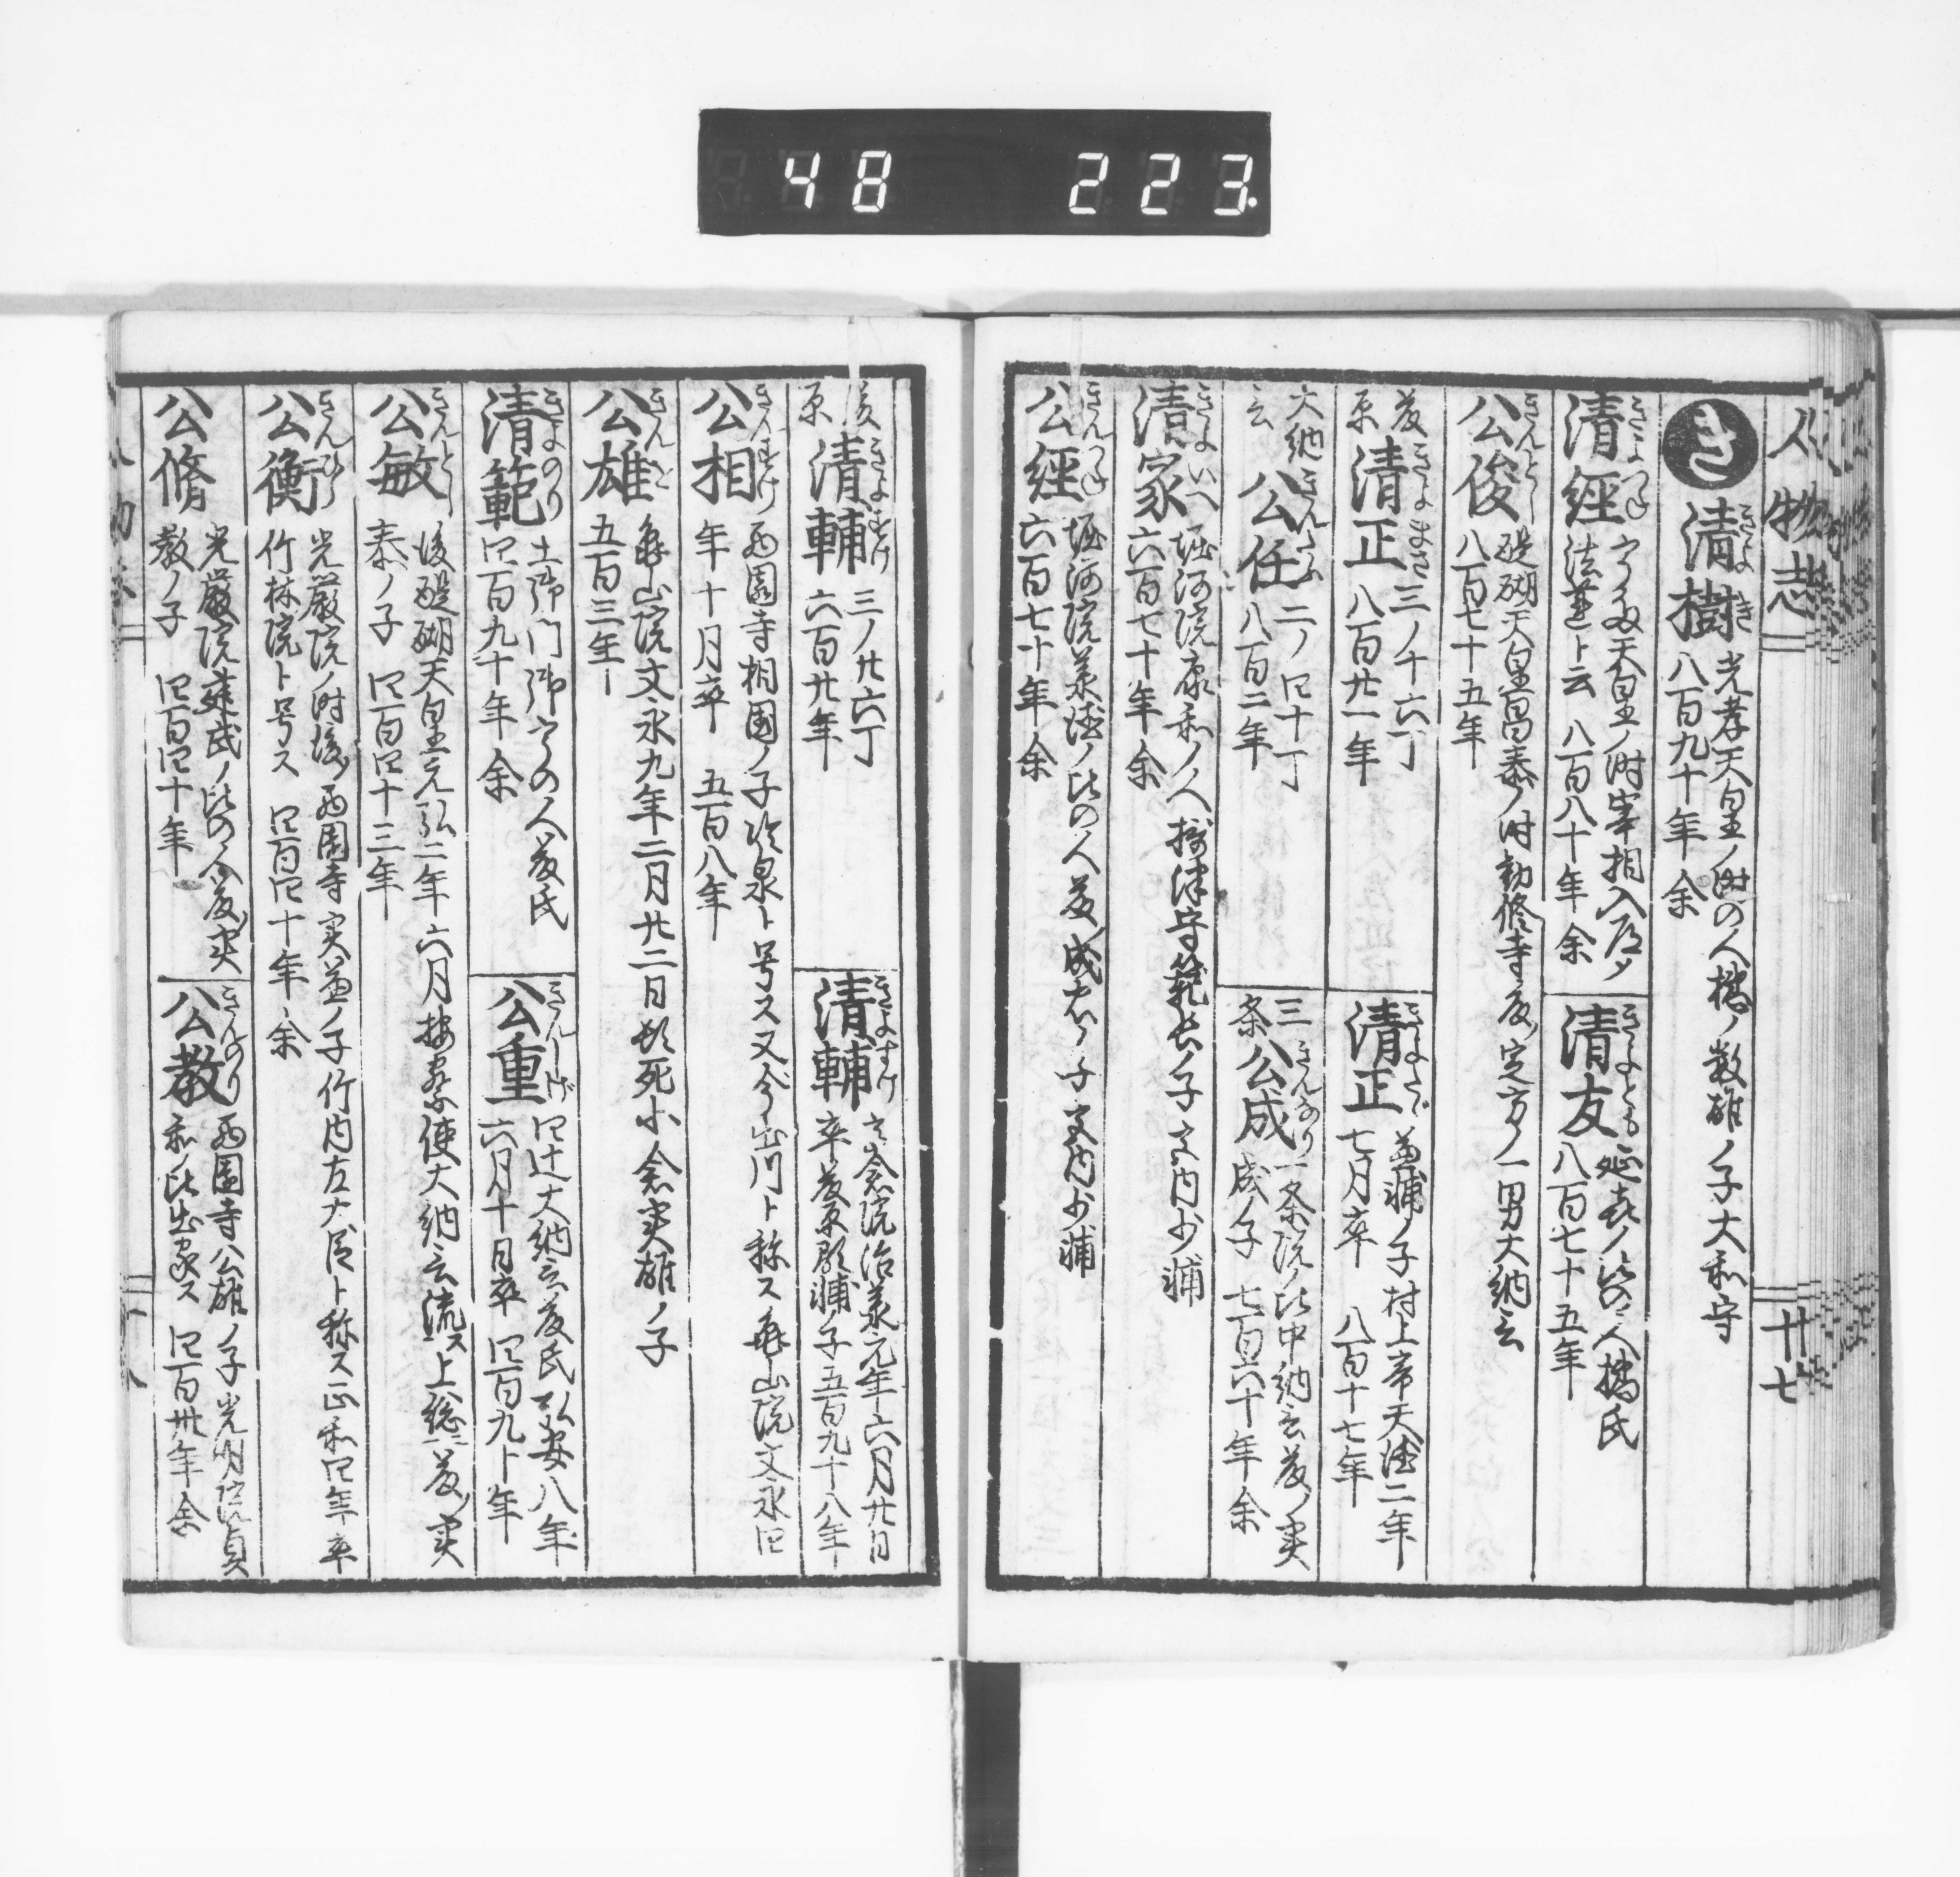 48 223
人物志
廿七
き
清樹 きよき
光孝天皇ノ時の人橘ノ数雄ノ子大和守
八百九十年余
清經 きよつね
宇多天皇ノ時宰相入道
法蓮ト云 八百八十年余
清友 きよとも
延喜ノ比の人橘氏
八百七十五年
公俊 きんとし
醍醐天皇昌泰ノ時勧修寺 定方ノ一男大納言
八百七十五年
清正 きよまさ
三ノ十六丁
八百廿一年
清正 きよたゞ
村上帝天徳二年
七月卒 八百十七年
大納言
公任 きんたふ
二ノ四十丁
八百二年
三条
公成 きんなり
一条院ノ比中納言藤ノ実
成ノ子 七百六十年余
清家 きよいへ
堀河院康和ノ人 摂津守範長ノ子宮内少輔
六百七十年余
公經 きんつね
堀河院 ノ比の人藤ノ成 ノ子宮内少輔
六百七十年余
清輔 きよすけ
三ノ廿六丁
六百廿年
清輔 きよすけ
高倉院治承元年六月廿日
卒藤原顕輔ノ子五百九十八年
公相 きんすけ
西園寺相国ノ子冷泉ト号ス又今出川ト称ス亀山院文永四
年十月卒 五百八年
公雄 きんを
亀山院文永九年二月廿二日 死小倉実雄ノ子
五百三年
清範 きよのり
土御門御宇の人藤氏
四百九十年余
公重 きんしげ
四辻大納言藤氏弘安八年
六月十日卒 四百九十年
公敏 きんとし
後醍醐天皇元弘二年六月按察使大納言流ス上総 藤ノ実
泰ノ子 四百四十三年
公衡 きんひら
光厳院ノ時後 西園寺実兼ノ子竹内左大臣ト称ス正和四年卒
竹林院ト号ス 四百四十年余
公脩
光厳院 ノ比の人藤ノ実
教ノ子 四百四十年
公教 きんのり
西園寺公雄ノ子光明院貞
和ノ比出家ス 四百卅年余